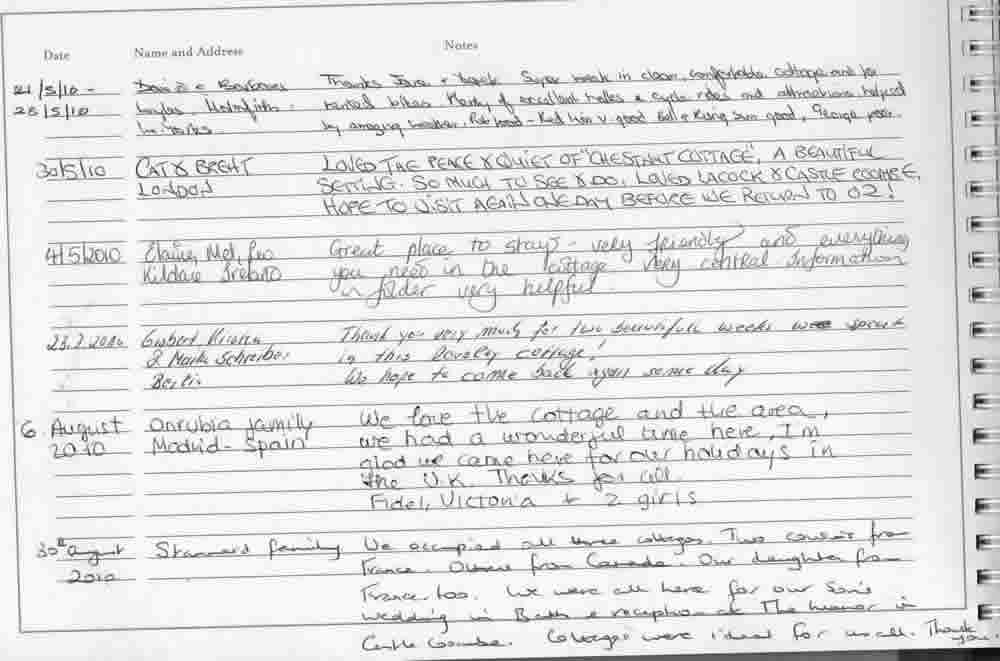 Date Name and Address Notes
21/5/10 - Thanks Super week in clean, comfortable cottage and for
28/5/10 Holmfirth. varied hikes. Plenty of excellent walks & cycle rides and attractions, helped
W. Yorks by amazing weather. Pub food - Red Lion v. good, Bell & Rising Sun good, George poor.
30/5/10 CAT & BRENT LOVED THE PEACE & QUIET OF "CHESTNUT COTTAGE", A BEAUTIFUL
LONDON SETTING. SO MUCH TO SEE & DO, LOVED LACOCK & CASTLE COOMBE,
HOPE TO VISIT AGAIN ONE DAY BEFORE WE RETURN TO OZ!
4/5/2010 Elaine, Mel, Great place to stay - very friendly and everything
Kildare Ireland you need in the cottage very central Information
in folder very helpful
23.7.2010 Thank you very much for two beautifull weeks we spent
& Schreiber in this lovely cottage!
Berlin We hope to come back again some day
6 August Onrubia family We love the cottage and the area,
2010 Madrid - Spain we had a wonderful time here, I'm
glad we came here for our holidays in
the U.K. Thanks for all.
Fidel, Victoria + 2 girls
30th August Stannard family We occupied all three cottages. Two cousins from
2010 France. Others from Canada. Our daughter from
France too. We were all here for our Son's
wedding in Bath & reception at The Manor in
Castle Coombe. Cottages were ideal for us all. Thank
you.